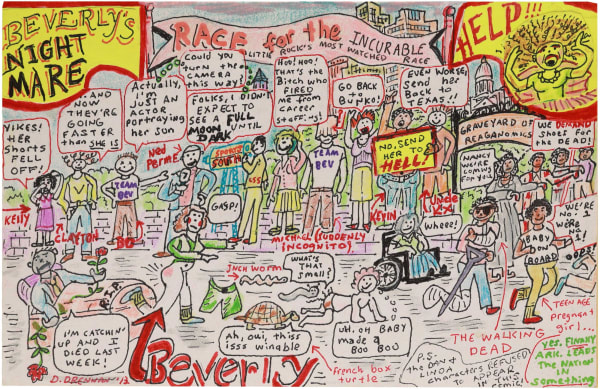 BEVERLY'S
NIGHT
MARE
RACE for the INCURABLE
LITTLE ROCK'S MOST WATCHED RACE
HELP!!!
YIKES!
HER
SHORTS
FELL
OFF!
AND
NOW
THEY'RE
GOING
FASTER
than SHE IS
Actually,
I'M
JUST AN
ACTOR
PORTRAYING
her son
Could you
turn the
CAMERA
this way!
FOLKS, I DIDN'T
EXPECT TO
SEE A FULL
MOON UNTIL
DARK
HOO! HOO!
THAT'S the
Bitch who
FIRED
ME from
CAREER
STAFFING!
GO BACK
TO
BUNKO!
EVEN WORSE,
Send
HER
back to
TEXAS!!
NO, SEND
HER TO
HELL!
GRAVEYARD OF
REAGANOMICS
WE DEMAND
Shoes for
the DEAD!
NANCY WE'RE
COMING
FOR YOU
NED PERME
TEAM
BEV
TEAM
BEV
KELLY
CLAYTON
BO
GASP!
MICHAEL (SUDDENLY
INCOGNITO)
KEVIN
UNCLE
Wheez!
WE'RE
NO. 1
WE'RE
NO. 1
OOPS!
BABY
ON
BOARD
INCH WORM
WHAT'S
THAT
Small?
I'M CATCHIN'
UP AND I
DIED LAST
WEEK!
D. DRENNAN '13
Beverly
Ah, oui, thiss
isss winable
French box
turtle
UH, OH BABY
made a
BOO BOO
THE WALKING
DEAD
TEENAGE
pregnant
girl...
P.S.
the DAN &
LINDA
characters REFUSED
to APPEAR
IN THIS
YES, FINALLY
ARK. LEADS
THE NATION
IN
something